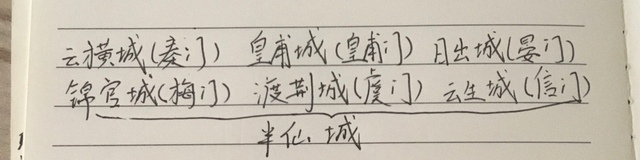 云横城(秦门) 皇甫城(皇甫门) 日出城(晏门)
锦官城(梅门) 渡荆城(虞门) 云生城(信门)
半仙城